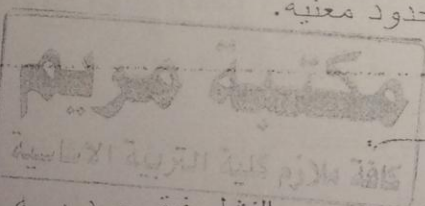 حدود معنيه.
مكتبة مريم
كافة ملازم كلية التربية الاساسية